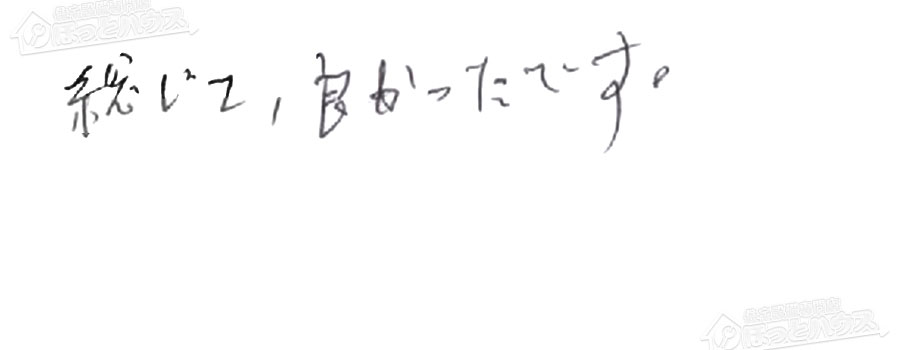 ほっとハウス
総じて，良かったです。
ほっとハウス